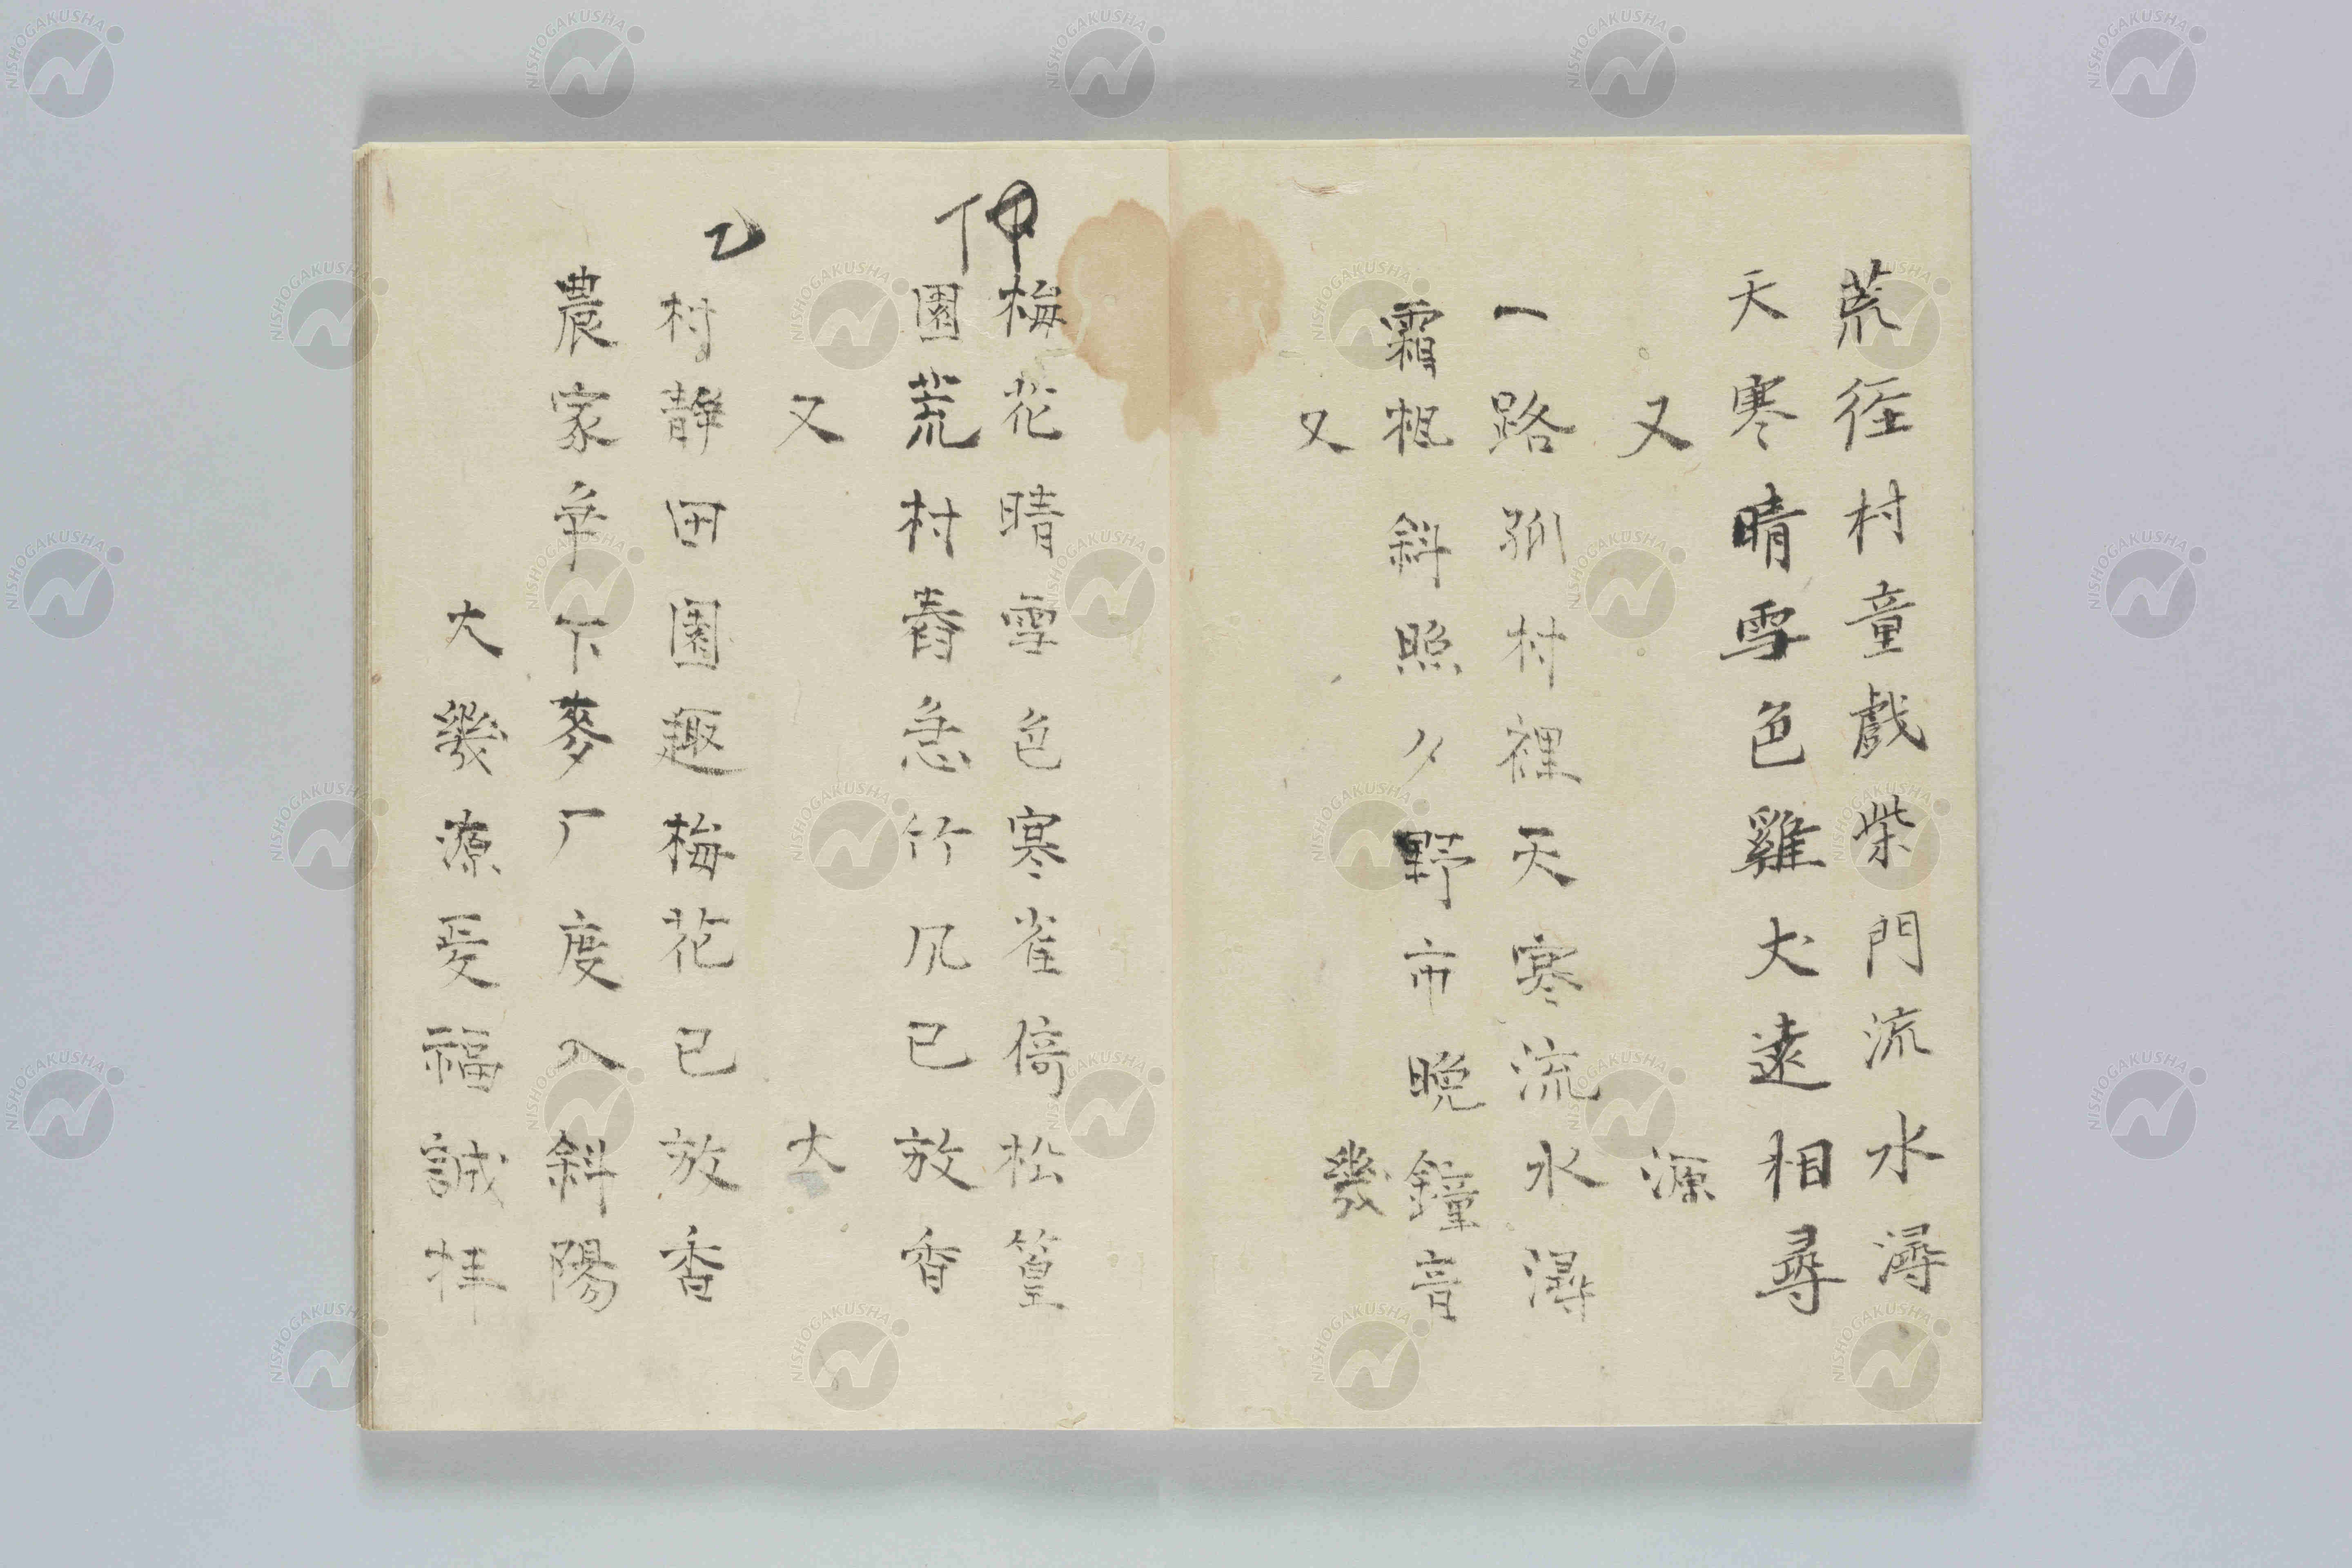 荒径村童戯柴門流水潯
天寒晴雪色雞犬遠相尋
又 源
一路孤村裡天寒流水潯
霜粗斜照夕野市晩鐘音
又 幾
梅花晴雪色寒雀倚松篁
園荒村舂急竹风已放香
又 大
乙
村静田園趣梅花已放香
農家辛下麥厂度入斜陽
大幾源受福誠拝
NISHOGAKUSHA